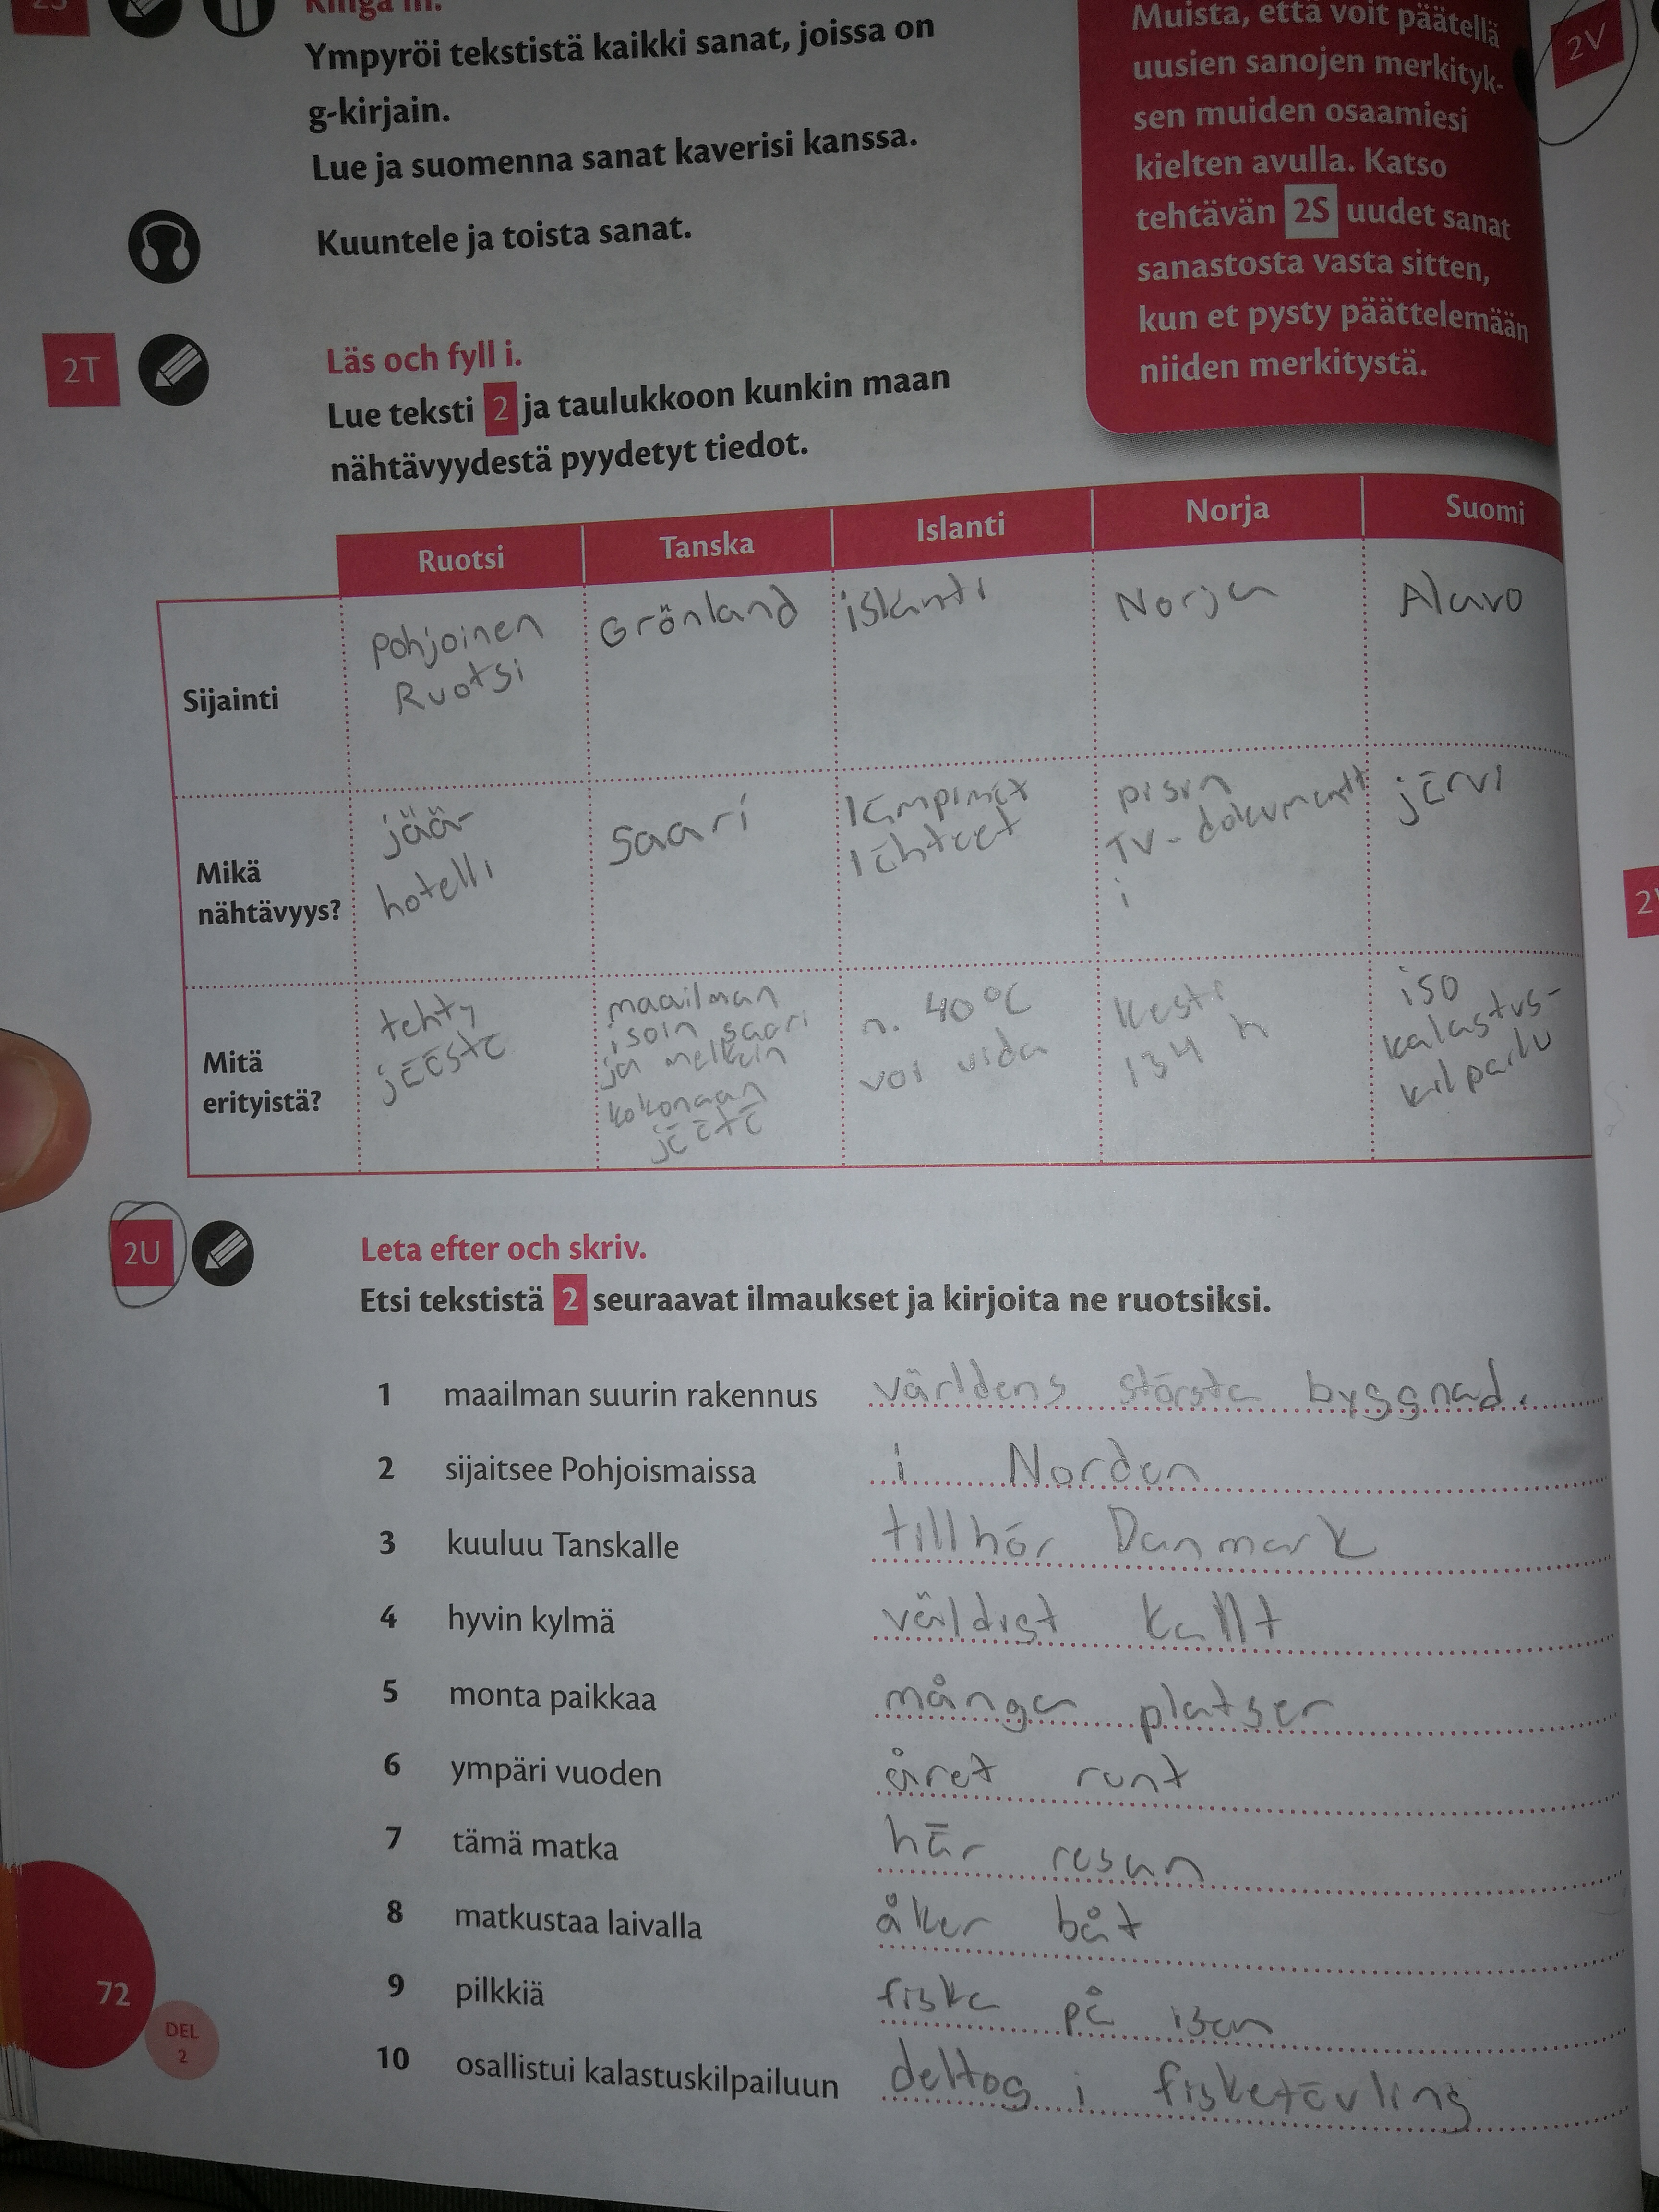 2S
Ringa in.
Ympyröi tekstistä kaikki sanat, joissa on
g-kirjain.
Lue ja suomenna sanat kaverisi kanssa.
Kuuntele ja toista sanat.
Muista, että voit päätellä
uusien sanojen merkityk-
sen muiden osaamiesi
kielten avulla. Katso
tehtävän 2S uudet sanat
sanastosta vasta sitten,
kun et pysty päättelemään
niiden merkitystä.
2V
2T
Läs och fyll i.
Lue teksti 2 ja taulukkoon kunkin maan
nähtävyydestä pyydetyt tiedot.
Ruotsi Tanska Islanti Norja Suomi
Sijainti
Pohjoinen
Ruotsi
Grönland
islanti
Norja
Alavo
Mikä
nähtävyys?
jää-
hotelli
saari
lämpimät
lähteet
pisin
TV-dokumentt
i
järvi
Mitä
erityistä?
tehty
jäästä
maailman
isoin saari
ja melkein
kokonaan
jäätä
n. 40°C
voi uida
Kesti
134 h
iso
kalastus-
kilpailu
2U
Leta efter och skriv.
Etsi tekstistä 2 seuraavat ilmaukset ja kirjoita ne ruotsiksi.
1 maailman suurin rakennus världens största byggnad.
2 sijaitsee Pohjoismaissa i Norden
3 kuuluu Tanskalle tillhör Danmark
4 hyvin kylmä väldigt kallt
5 monta paikkaa många platser
6 ympäri vuoden året runt
7 tämä matka här resan
8 matkustaa laivalla åker båt
9 pilkkiä fiska på isen
10 osallistui kalastuskilpailuun deltog i fisketävling
72
DEL
2